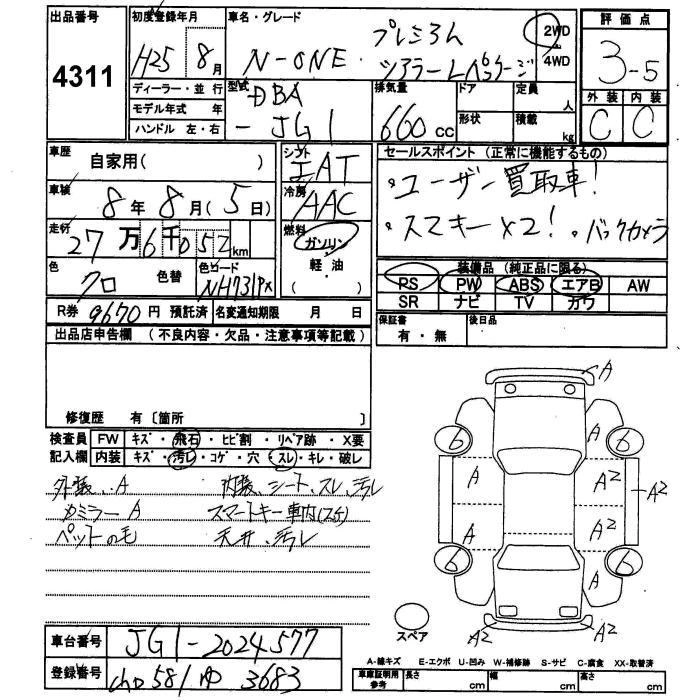 出品番号 4311
初度登録年月 H25 8月
車名・グレード N-ONE プレミアム ツアラーLパッケージ
2WD
4WD
評価点 3-5
外装 内装
C C
ディーラー・並行
モデル年式 年
ハンドル 左・右
型式 DBA
- JG1
排気量 660 cc
ドア 定員 人
形状 積載 kg
車歴 自家用( )
車検 8年8月(5日)
走行 27万6千052km
色 クロ 色替 色コード NH731PX
R券 9670円 預託済 名変通知期限 月 日
シフト IAT
冷房 AAC
燃料 ガソリン
軽・油
( )
セールスポイント (正常に機能するもの)
・ユーザー買取車!
・スマキー×2! ・バックカメラ
装備品 (純正品に限る)
PS PW ABS エアB AW
SR ナビ TV カワ
保証書 有・無 後日品
出品店申告欄 (不良内容・欠品・注意事項等記載)
修復歴 有〔箇所 〕
検査員 FW キズ・飛石・ヒビ割・リペア跡・X要
記入欄 内装 キズ・汚レ・コゲ・穴・スレ・キレ・破レ
外装、A 内装、シート、スレ、汚レ
ミラー A スマートキー車内(スケ)
ペットの毛 天井、汚レ
A
6 A 6
A A2
A2
A A2
6 A 6
A2 A2
スペア
車台番号 JG1-2024577
登録番号 581 3683
A-線キズ E-エクボ U-凹み W-補修跡 S-サビ C-腐食 XX-取替済
車庫証明用 参考 長さ cm 幅 cm 高さ cm